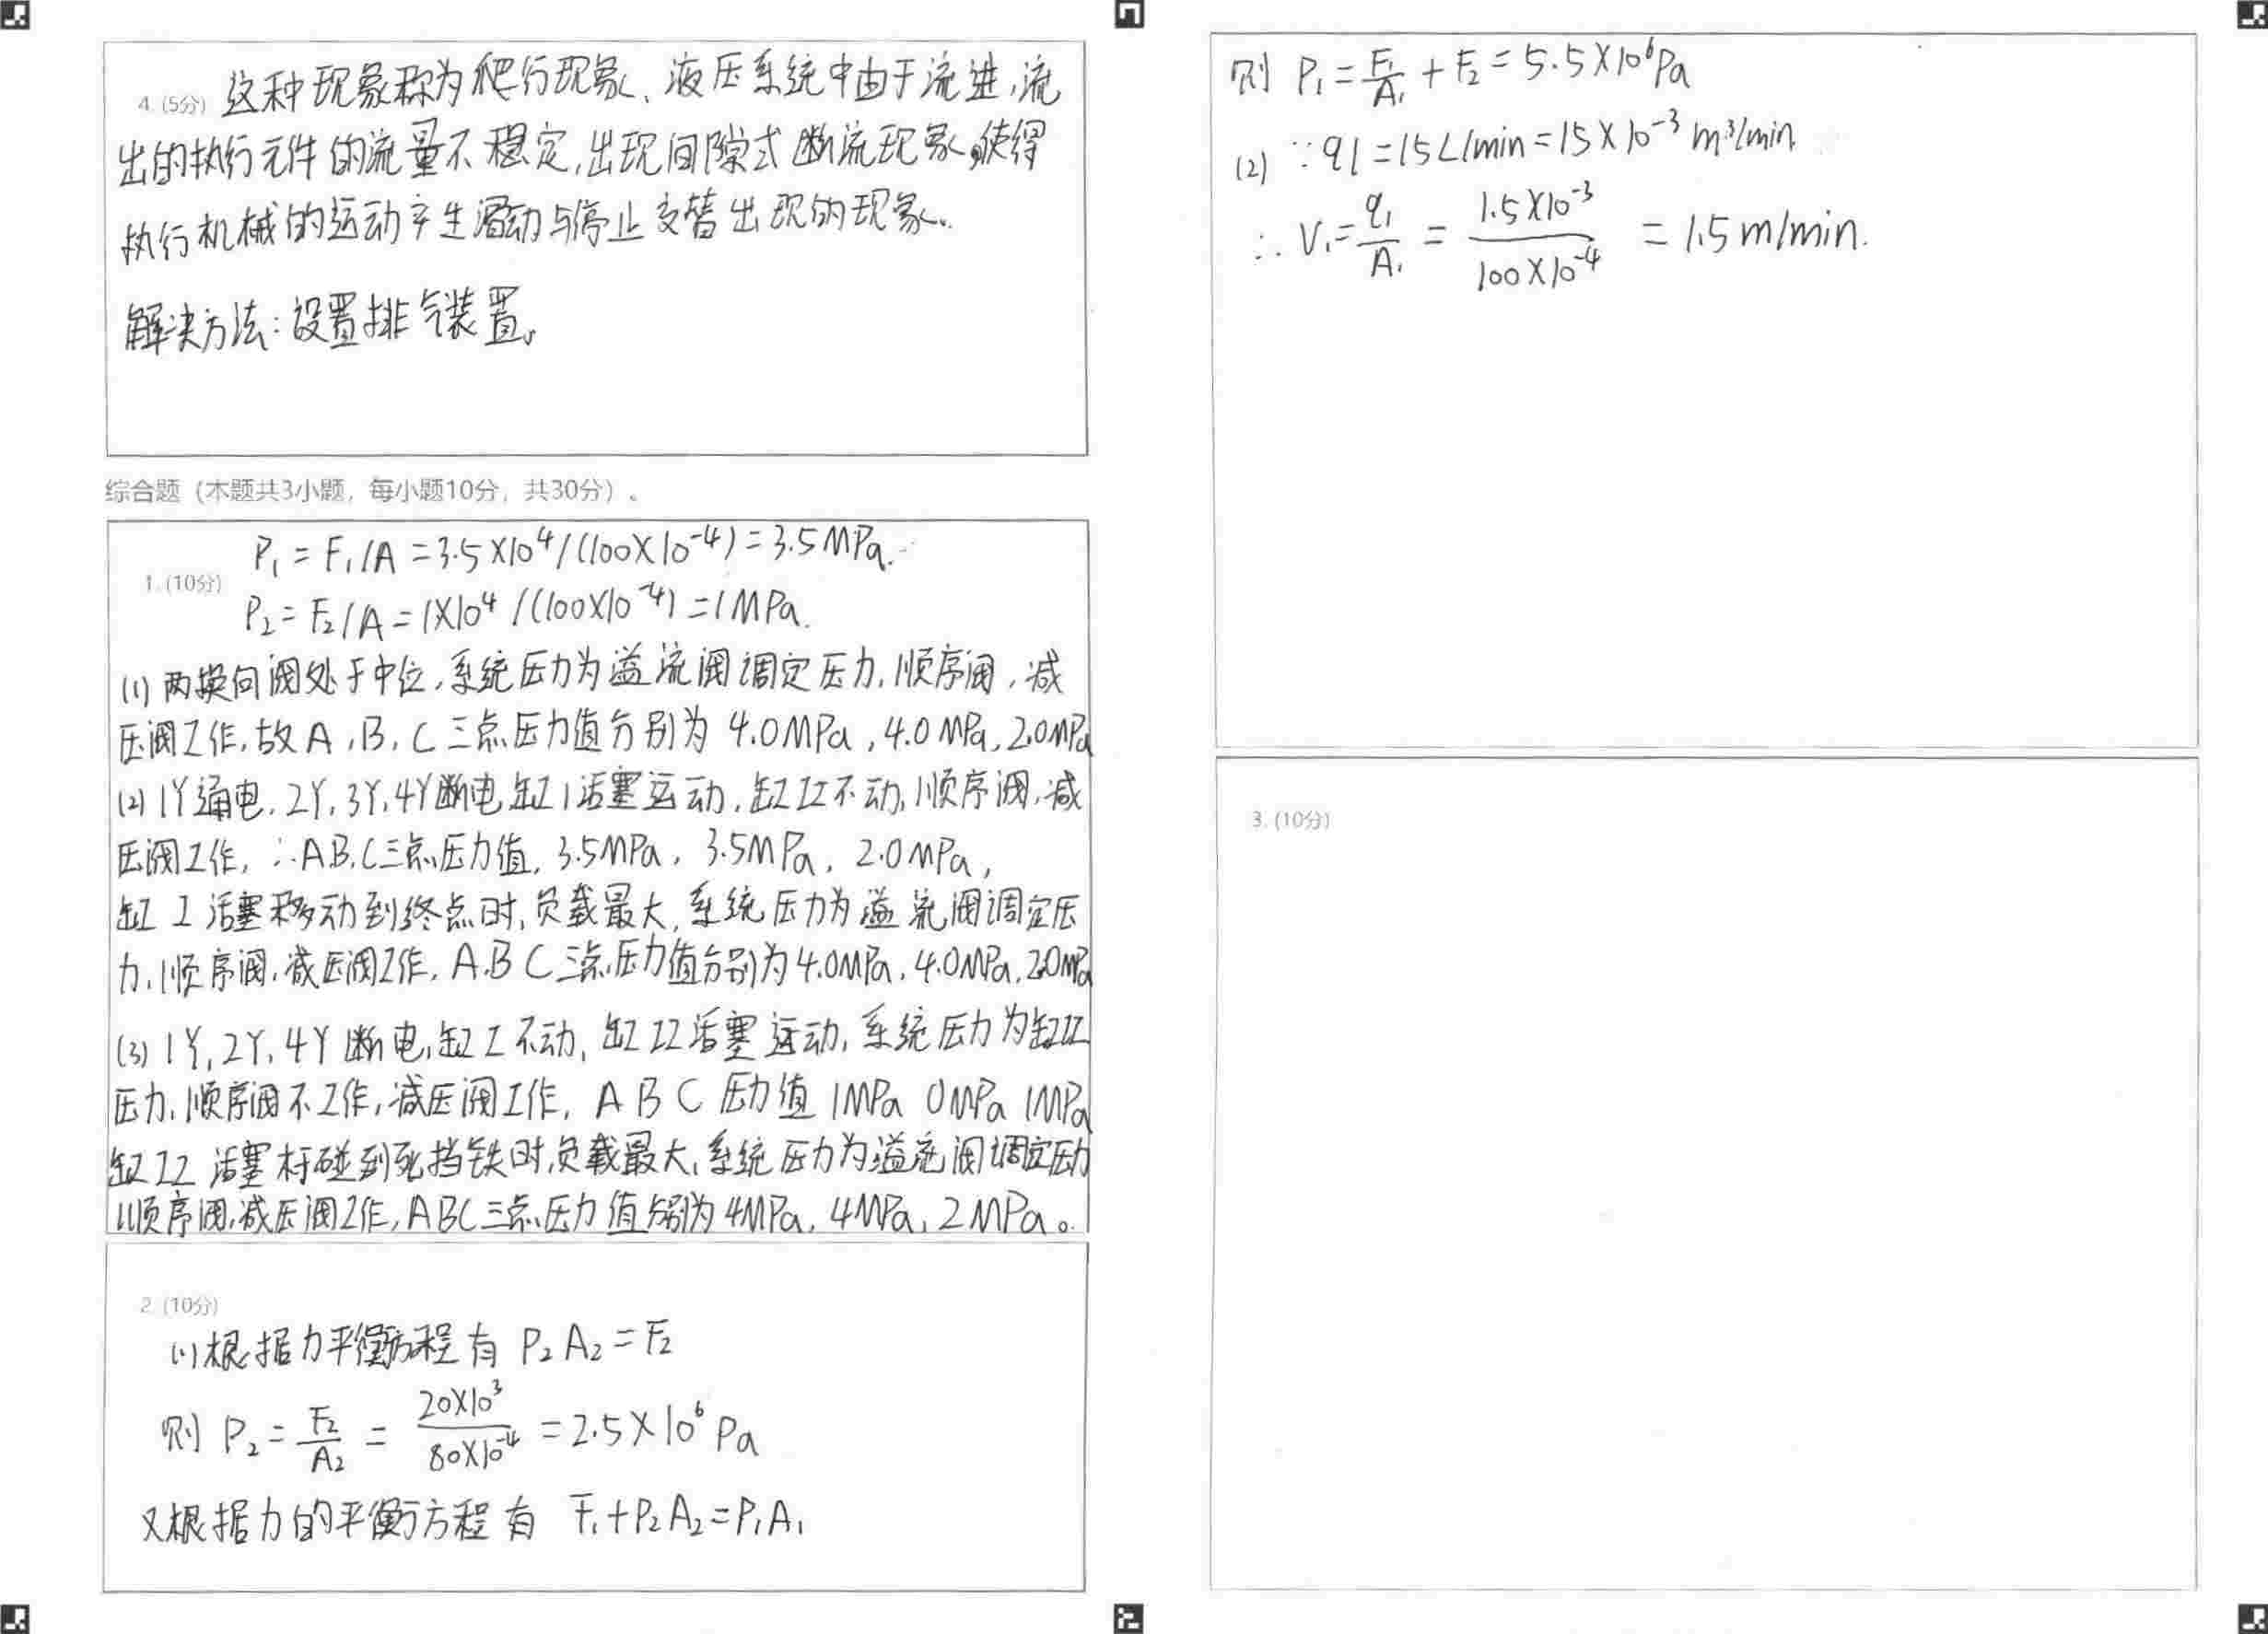 4. (5分) 这种现象称为爬行现象、液压系统中由于流进,流
出的执行元件的流量不稳定,出现间隙式断流现象,使得
执行机械的运动产生滑动与停止交替出现的现象.
解决方法:设置排气装置。
综合题（本题共3小题，每小题10分，共30分）。
P₁ = F₁/A = 3.5×10⁴/(100×10⁻⁴) = 3.5MPa.
1. (10分)
P₂ = F₂/A = 1×10⁴/(100×10⁻⁴) = 1MPa.
(1) 两换向阀处于中位,系统压力为溢流阀调定压力,顺序阀,减
压阀工作,故A,B,C三点压力值分别为 4.0MPa,4.0MPa,2.0MPa
(2) 1Y通电,2Y,3Y,4Y断电缸1活塞运动,缸II不动,顺序阀,减
压阀工作,∴AB,C三点压力值,3.5MPa,3.5MPa,2.0MPa,
缸I活塞移动到终点时,负载最大,系统压力为溢流阀调定压
力,顺序阀,减压阀工作,A,B C三点压力值分别为4.0MPa,4.0MPa,2.0MPa
(3) 1Y,2Y,4Y断电,缸I不动,缸II活塞运动,系统压力为缸II
压力,顺序阀不工作,减压阀工作,A B C 压力值 1MPa 0MPa 1MPa
缸II活塞杆碰到死挡铁时,负载最大,系统压力为溢流阀调定压力
顺序阀,减压阀工作,ABC三点压力值分别为4MPa,4MPa,2MPa。
2. (10分)
(1)根据力平衡方程有 P₂A₂=F₂
则 P₂ = F₂/A₂ = 20×10³/80×10⁻⁴ = 2.5×10⁶ Pa
又根据力的平衡方程有 F₁+P₂A₂=P₁A₁
则 P₁ = F₁/A₁ + F₂ = 5.5×10⁶Pa
(2) ∵ q1 = 15L/min = 15×10⁻³ m³/min
∴ V₁ = q₁/A₁ = 1.5×10⁻³/100×10⁻⁴ = 1.5m/min.
3. (10分)